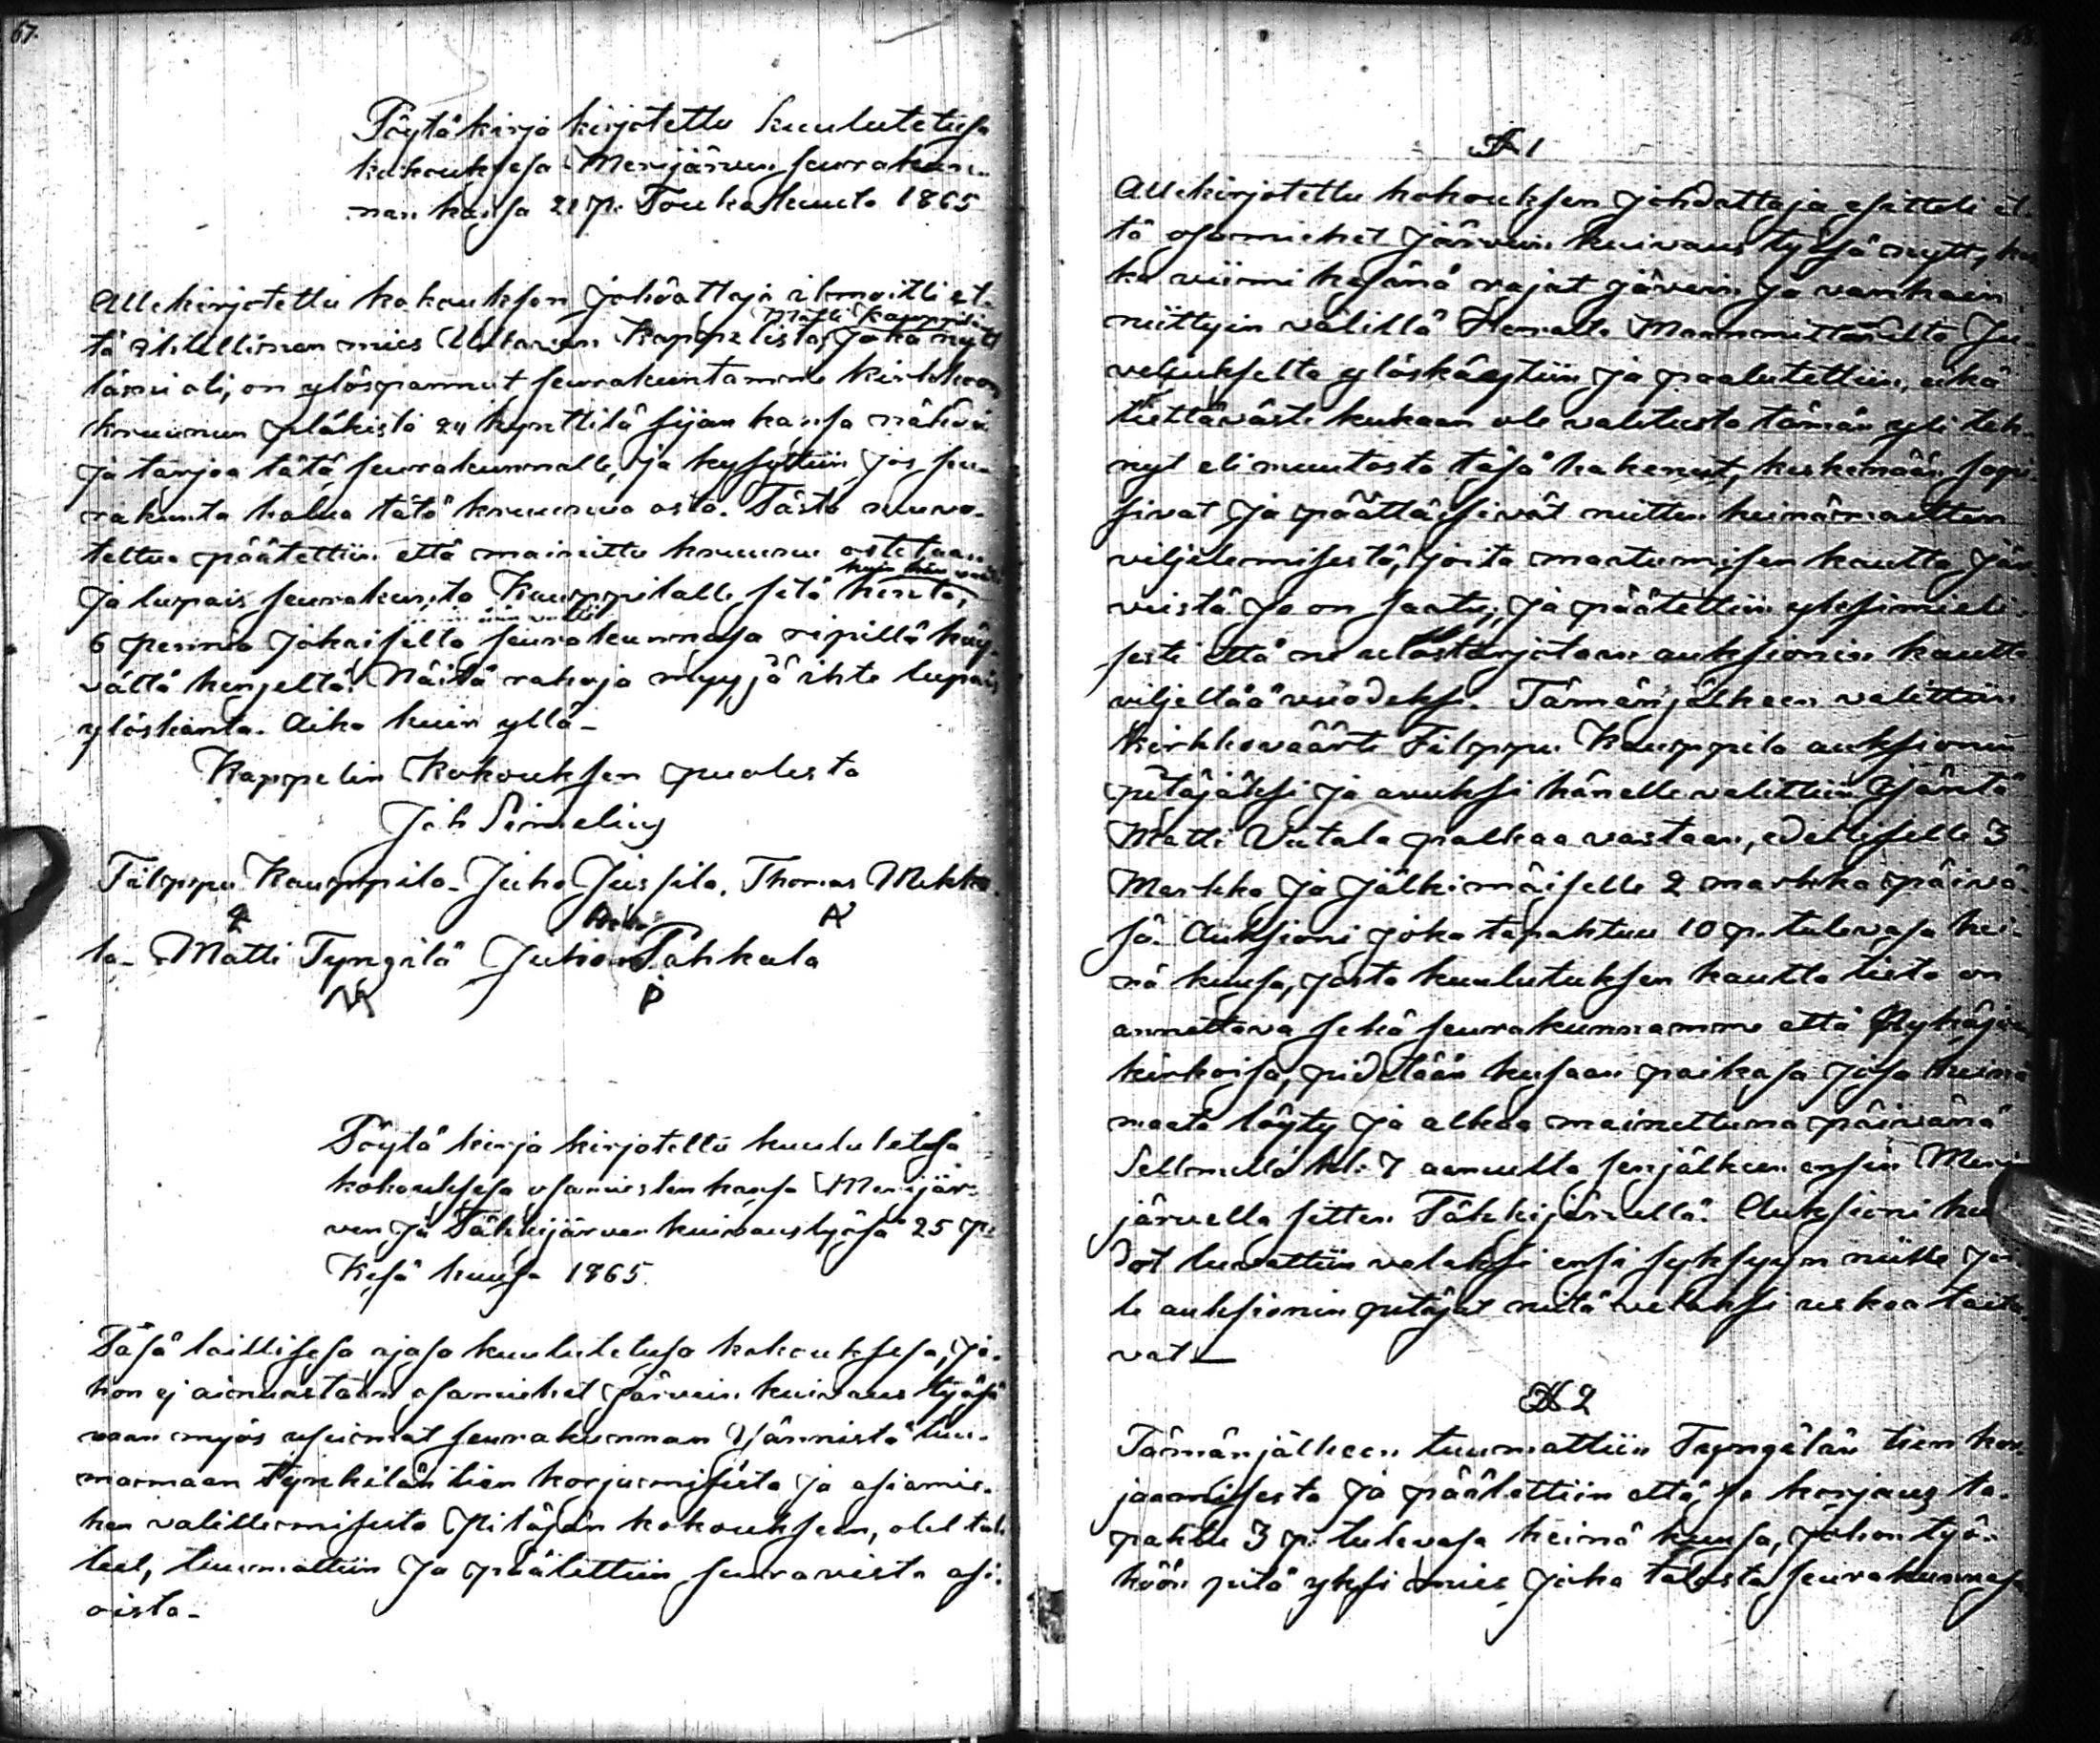 67.
Pöytäkirja kirjotettu kuulutetusa
kokouksesa Merijärven seurakun-
nan kansa 21 p. Toukokuuta 1865
Allekirjotettu kokouksen johdattaja ilmoitti et-
Matti Kauppila
tä itillinen mies Utajärven Kappelista, joka nytt
läsnä oli, on ylöspannut seurakuntamme kirkkoon
kruunun pläkistä 24 kynttilä sijan kansa nähdä
ja tarjoa tätä seurakunnalle, ja kysyttiin jos seu-
rakunta halua tätä kruunua osta. Tästä neuvo-
teltua päätettiin että mainittu kruunu ostetaan
ja lupais seurakunta Kauppilalle sitä hinta,
6 penniä jokaiselta seurakunnasa ripillä käy-
vältä hengeltä. Näitä rahoja myyjä ihte lupais
ylöskanta. Aika kuin yllä-
Kappelin Kokouksen puolesta
Joh Simelius
Filppu Kauppila. Juho Jussila, Thomas Mikko-
la- Matti Tyngälä Juho Pahkala
Pöytä kirja kirjotettu kuulutetusa
kokouksesa osamiesten kansa Merijär-
ven ja Tähkijärven kuivaustyösä 25 p.
Kesä kuusa 1865.
Täsä laillisesa ajasa kuulutetusa kokouksesa, jo-
hon ej ainuastaan osamiehet järvein kuivaus työsä
vaan myös usiemat seurakunnan Isännistä tuu-
maamaan Tynkilän tien korjuumisesta ja asiamie-
hen valittemisesta Pitäjän kokoukseen, olit tul-
leet, tuumattiin ja päätettiin seuravista asi-
oista-
§ 1
Allekirjotettu kokouksen johdattaja esitteli et-
tä osamiehet järvein kuivaus työsä nytt,
ka viimi kesänä rajat järvein ja vanhain
niittyin välillä Herralta Maanmittarilta Ju-
veliukselta ylöskäytiin ja paalutettiin, eikä
tiettävästi kukaan ole valitusta tämän yli teh-
nyt eli muutosta täsä hakenut, keskenään sopi-
sivat ja päättäisivät niitten heinämaitten
viljelemisestä, joita maatumisen kautta jär-
vistä jo on saatu; ja päätettiin yksimieli-
sesti että ne ulostarjotaan auksionin kautta
viljeltää vuodeksi. Tämänjälkeen valittiin
Kirkkoväärti Filppu Kauppila auksionin
pitäjäksi ja avuksi hänelle valittiin Isäntä
Matti Viitala palkaa vastaan, edelliselle 3
Markka ja jälkimäiselle 2 markka päivä-
sä. Auksioni joka tapahtuu 10 p. tulevasa hei-
nä kuusa, josta kuulutuksen kautta tieto on
annettava sekä seurakunnamme että Pyhäjoen
kirkoisa, pidetään kusaan paikasa josa heinä
maata löyty ja alkaa mainittuna päivänä
Sellmellä kl. 7 aamulla senjälkeen ensin Meri
järvellä sitten Tähkijärvellä. Auksioni hu
dot luvattiin velaksi ensi syksyyn niille joi-
le auksionin pitäjät niitä velaksi uskoa taita-
vat-
§ 2
Tämänjälkeen tuumattiin Tyngälän tien kor-
jaamisesta ja päätettiin että se korjaus ta-
pahtu 3 p. tulevasa heinä kuusa, johon työ-
höön pitä yksi mies joka talosta seurakunnasa